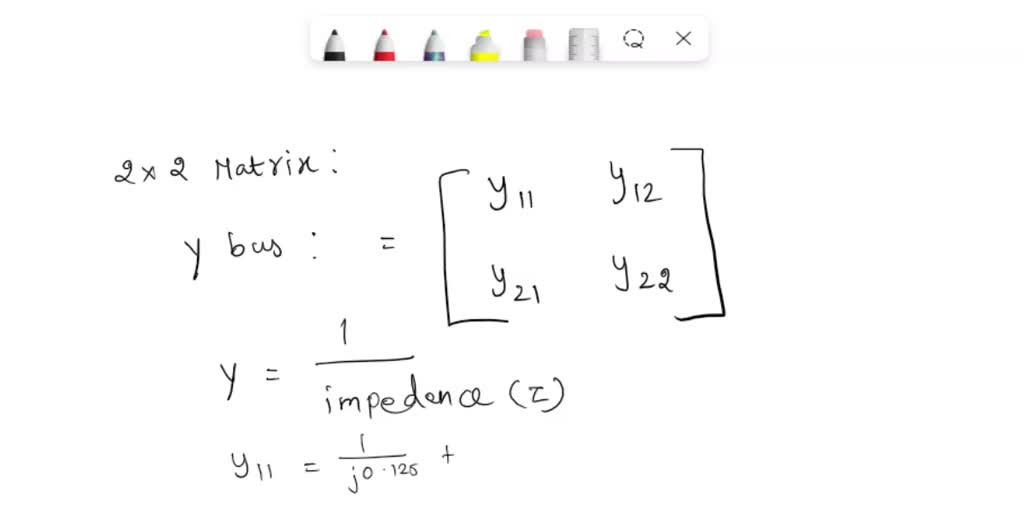 2×2 Matrix :
y bus : = [ y11 y12
y21 y22 ]
y = 1 / impedence (z)
y11 = 1 / j0.125 +